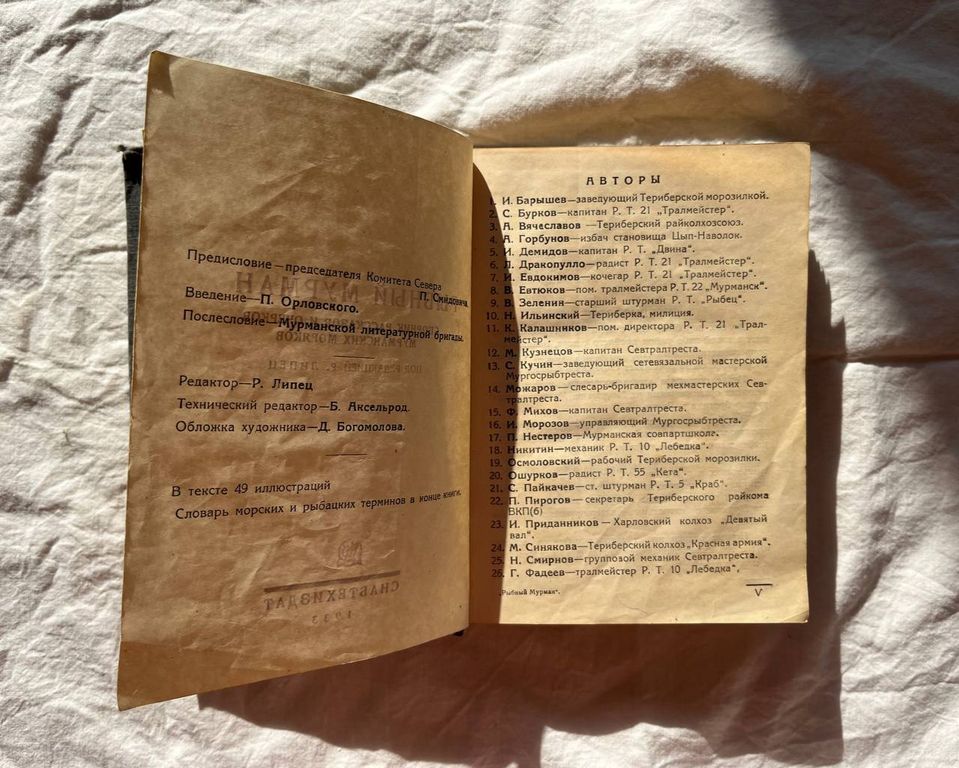 Предисловие — председателя Комитета Севера
П. Смидовича.
Введение—П. Орловского.
Послесловие—Мурманской литературной бригады.
Редактор—Р. Липец
Технический редактор—Б. Аксельрод.
Обложка художника—Д. Богомолова.
В тексте 49 иллюстраций
Словарь морских и рыбацких терминов в конце книги.
РЫБНЫЙ МУРМАН
СБОРНИК РАССКАЗОВ И ОЧЕРКОВ
МУРМАНСКИХ МОРЯКОВ
ПОД РЕДАКЦИЕЙ Р. ЛИПЕЦ
СНАБТЕХИЗДАТ
1933
АВТОРЫ
1. И. Барышев—заведующий Териберской морозилкой.
2. С. Бурков—капитан Р. Т. 21 „Тралмейстер“.
3. А. Вячеславов —Териберский райколхозсоюз.
4. А. Горбунов—избач становища Цып-Наволок.
5. И. Демидов—капитан Р. Т. „Двина“.
6. Л. Дракопулло—радист Р. Т. 21 „Тралмейстер“.
7. И. Евдокимов—кочегар Р. Т. 21 „Тралмейстер“.
8. В. Евтюков—пом. тралмейстера Р. Т. 22 „Мурманск“.
9. В. Зеленин—старший штурман Р. Т. „Рыбец“.
10. Н. Ильинский—Териберка, милиция.
11. К. Калашников—пом. директора Р. Т. 21 „Трал-
мейстер“.
12. М. Кузнецов—капитан Севтралтреста.
13. С. Кучин—заведующий сетевязальной мастерской
Мургосрыбтреста.
14. Можаров—слесарь-бригадир мехмастерских Сев-
тралтреста.
15. Ф. Михов—капитан Севтралтреста.
16. И. Морозов—управляющий Мургосрыбтреста.
17. П. Нестеров—Мурманская совпартшкола.
18. Никитин—механик Р. Т. 10 „Лебедка“.
19. Осмоловский—рабочий Териберской морозилки.
20. Ошурков—радист Р. Т. 55 „Кета“.
21. С. Пайкачев—ст. штурман Р. Т. 5 „Краб“.
22. П. Пирогов—секретарь Териберского райкома
ВКП(б)
23. И. Приданников—Харловский колхоз „Девятый
вал“.
24. М. Синякова—Териберский колхоз „Красная армия“.
25. Н. Смирнов—групповой механик Севтралтреста.
26. Г. Фадеев—тралмейстер Р. Т. 10 „Лебедка“.
„Рыбный Мурман“.
V